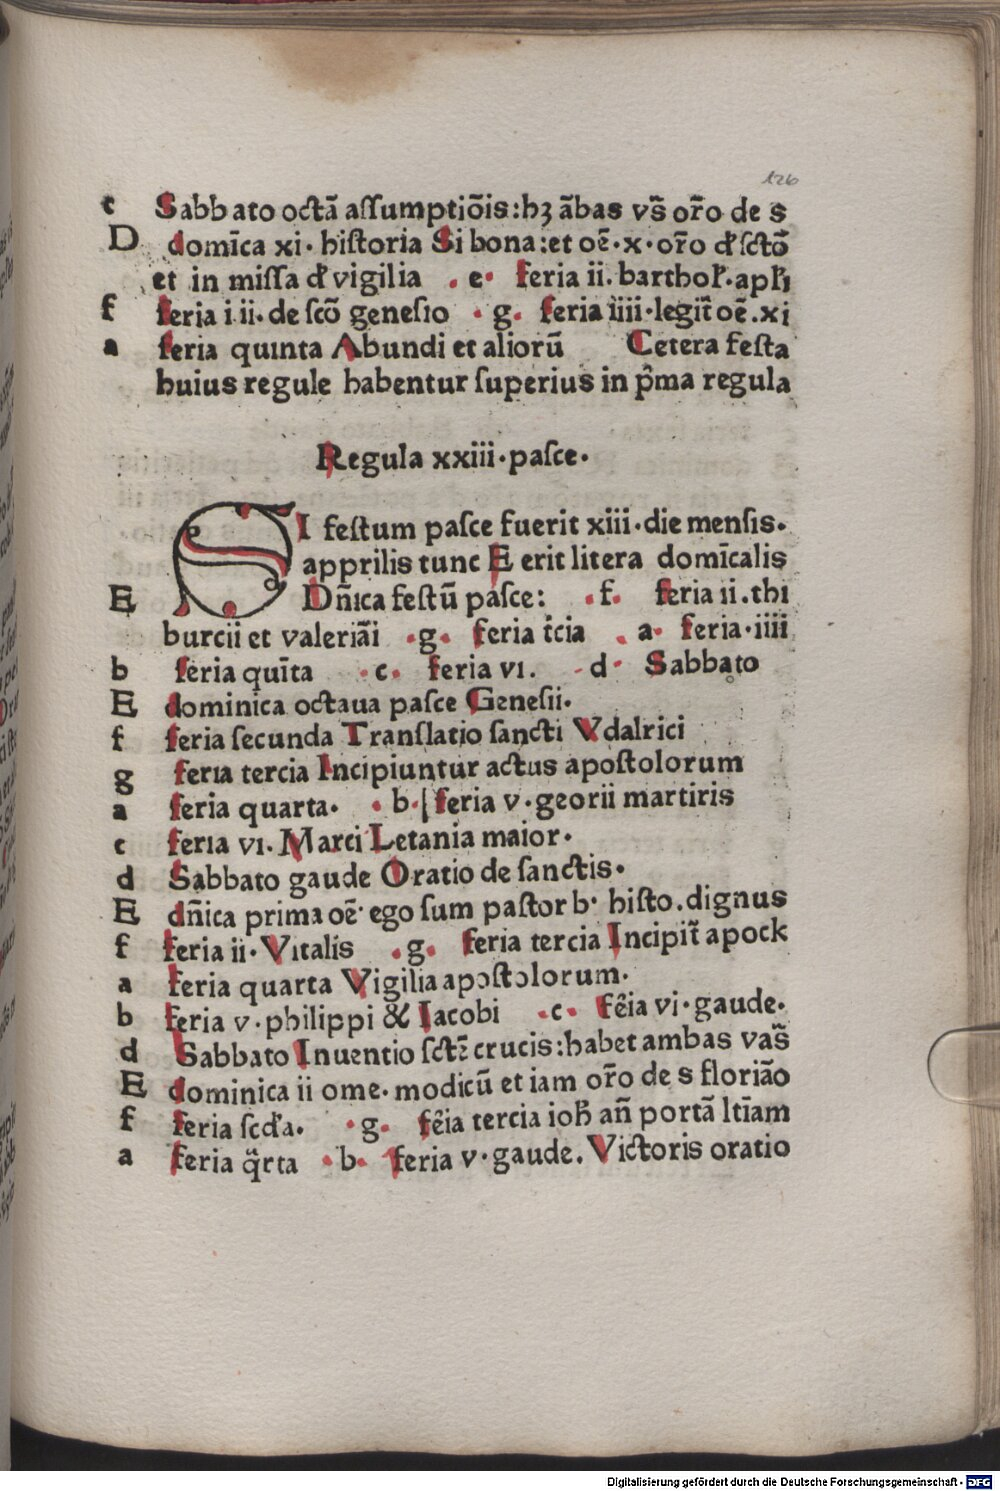 126
c Sabbato octā aſſumptiōis:hꝫ ābas vs̄ or̄o de s
D domīca xi· hiſtoria Si bona:et oē·x·or̄o đ ſctō
et in miſſa đ vigilia · e· feria ii. barthoł·apłi
f feria iii· de ſcō geneſio · g· feria iiii·legit̄ oē.xi
a feria quinta Abundi et aliorū Cetera feſta
huius regule habentur ſuperius in p̄ma regula
Regula xxiii·paſce·
SI feſtum paſce fuerit xiii·die menſis·
apprilis tunc E erit litera domīcalis
E Dn̄ica feſtū paſce: ·f· feria ii.thi
burcii et valeriāi ·g· feria t̄cia . a· feria·iiii
b feria quīta ·c· feria vi. ·d· Sabbato
E dominica octaua paſce Geneſii·
f feria ſecunda Tranſlatio ſancti Vdalrici
g feria tercia Incipiuntur actus apoſtolorum
a feria quarta· ·b· feria v·georii martiris
c feria vi·Marci Letania maior·
d Sabbato gaude Oratio de ſanctis·
E dn̄ica prima oē· ego ſum paſtor b· hiſto.dignus
f feria ii·Vitalis ·g· feria tercia Incipit̄ apock
a feria quarta Vigilia apoſtolorum·
b feria v·philippi & Iacobi ·c· fēia vi·gaude·
d Sabbato Inuentio ſctē crucis:habet ambas vas̄
E dominica ii ome·modicū et iam or̄o de s floriāo
f feria ſcđa· ·g· fēia tercia ioħ an̄ portā ltīam
a feria q̄rta ·b· feria v·gaude.Victoris oratio
Digitalisierung gefördert durch die Deutsche Forschungsgemeinschaft - DFG